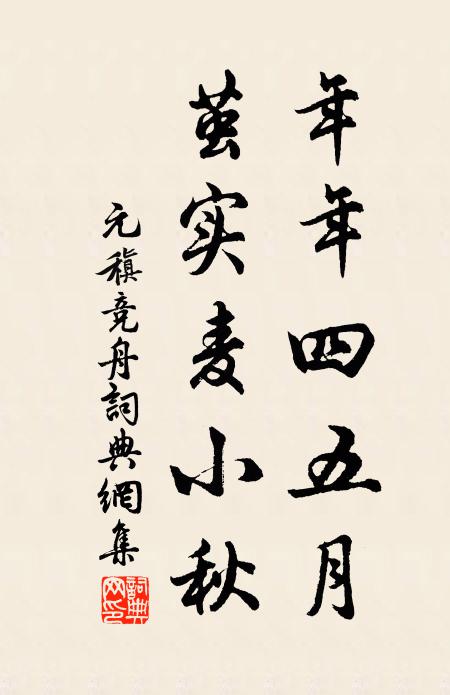 年年四五月
茧实麦小秋
元稹竞舟詞典網集
詞典网印